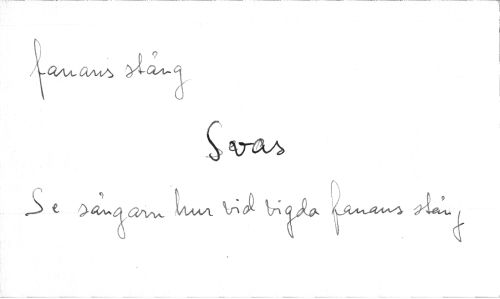 fanans stång
Svas
Se sångarn hur vid vigda fanans stång